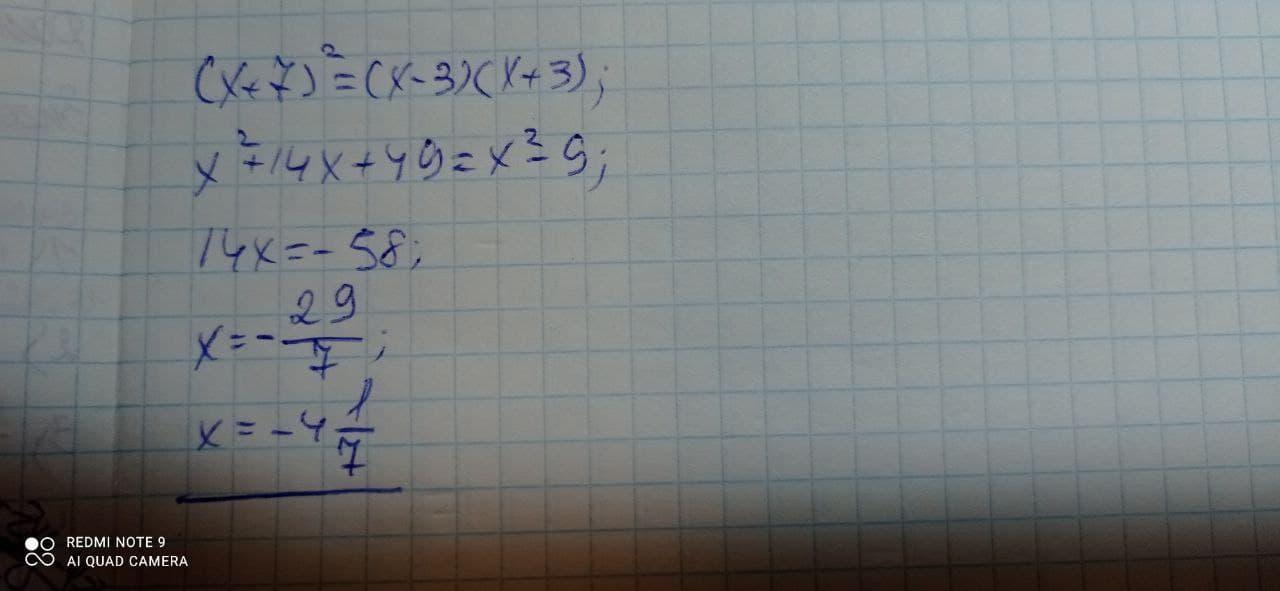 (x+7)²=(x-3)(x+3);
x²+14x+49=x²-9;
14x=-58;
x=-29/7;
x=-4 1/7
REDMI NOTE 9
AI QUAD CAMERA